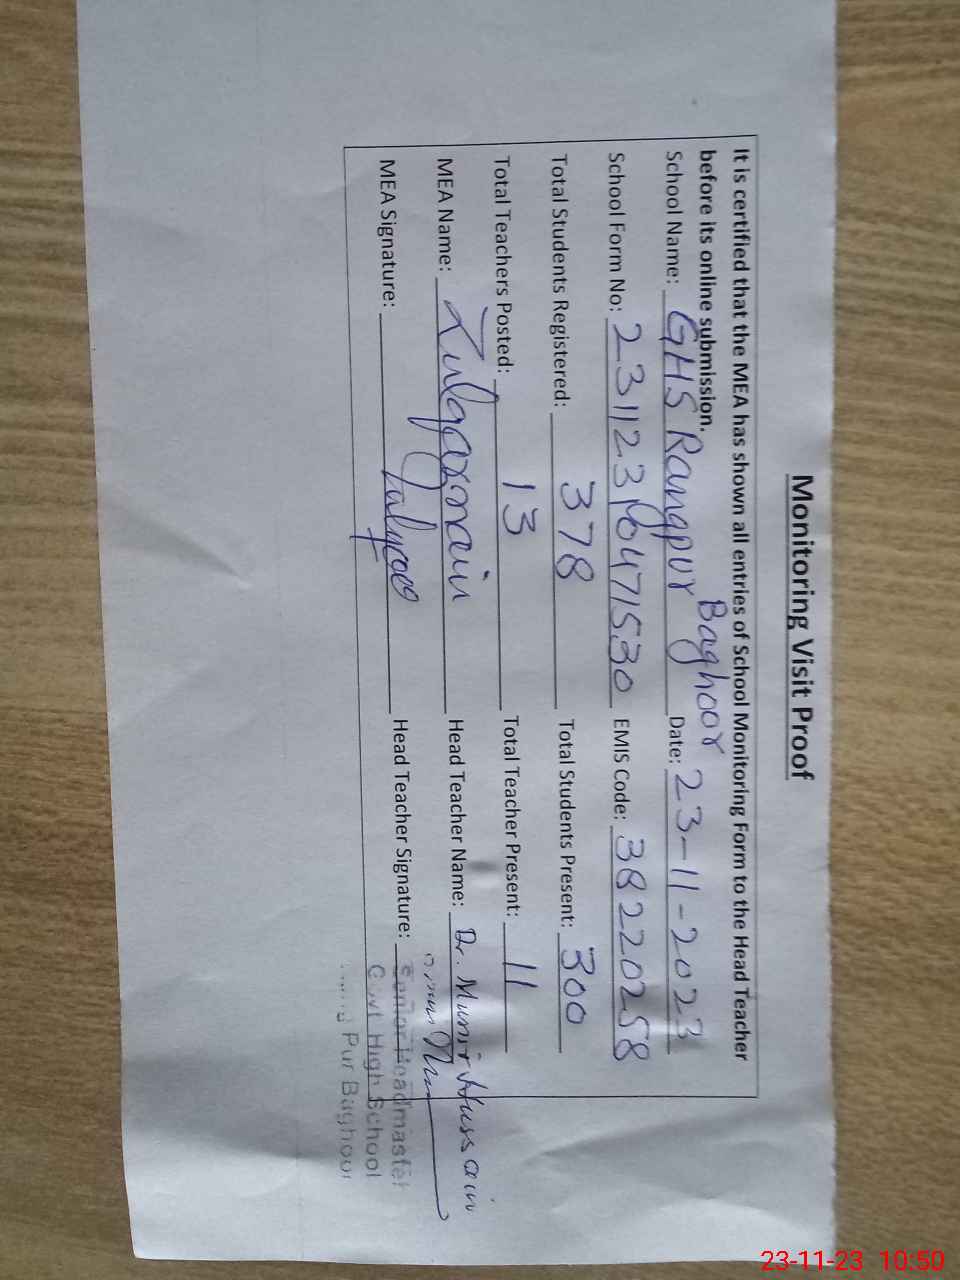 Monitoring Visit Proof
It is certified that the MEA has shown all entries of School Monitoring Form to the Head Teacher
before its online submission.
School Name: GHS Rangpur Baghoor Date: 23-11-2023
School Form No: 231123 EMIS Code: 38220258
Total Students Registered: 378 Total Students Present: 300
Total Teachers Posted: 13 Total Teacher Present: 11
MEA Name: Zulqarnain Head Teacher Name: Dr. Munir Hussain
MEA Signature: Head Teacher Signature:
Senior Headmaster
Govt High School
Pur Baghoor
23-11-23 10:50